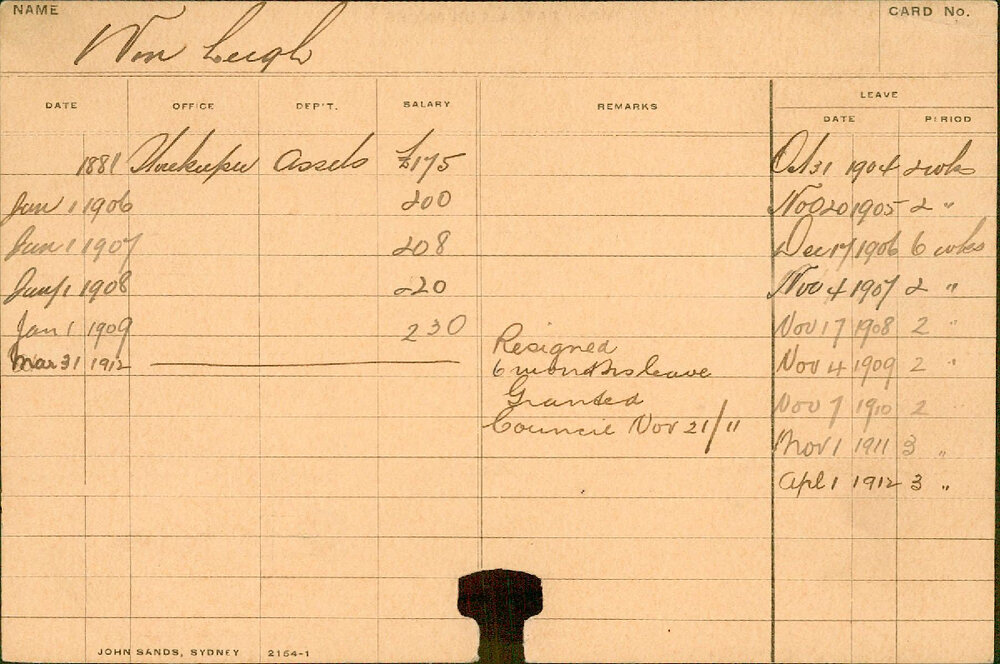 NAME CARD No.
Wm Leigh
LEAVE
DATE OFFICE DEP'T. SALARY REMARKS DATE PERIOD
1881 Storekeeper Assets £175 Oct 31 1904 2 wks
Jan 1 1906 200 Nov 20 1905 2 "
Jan 1 1907 208 Dec 17 1906 6 wks
Jany 1 1908 220 Nov 4 1907 2 "
Jan 1 1909 230 Nov 17 1908 2 "
Mar 31 1912 Resigned Nov 4 1909 2 "
6 months leave
Granted Nov 7 1910 2 "
Council Nov 21/11 Nov 1 1911 3 "
Apl 1 1912 3 "
JOHN SANDS, SYDNEY 2154-1